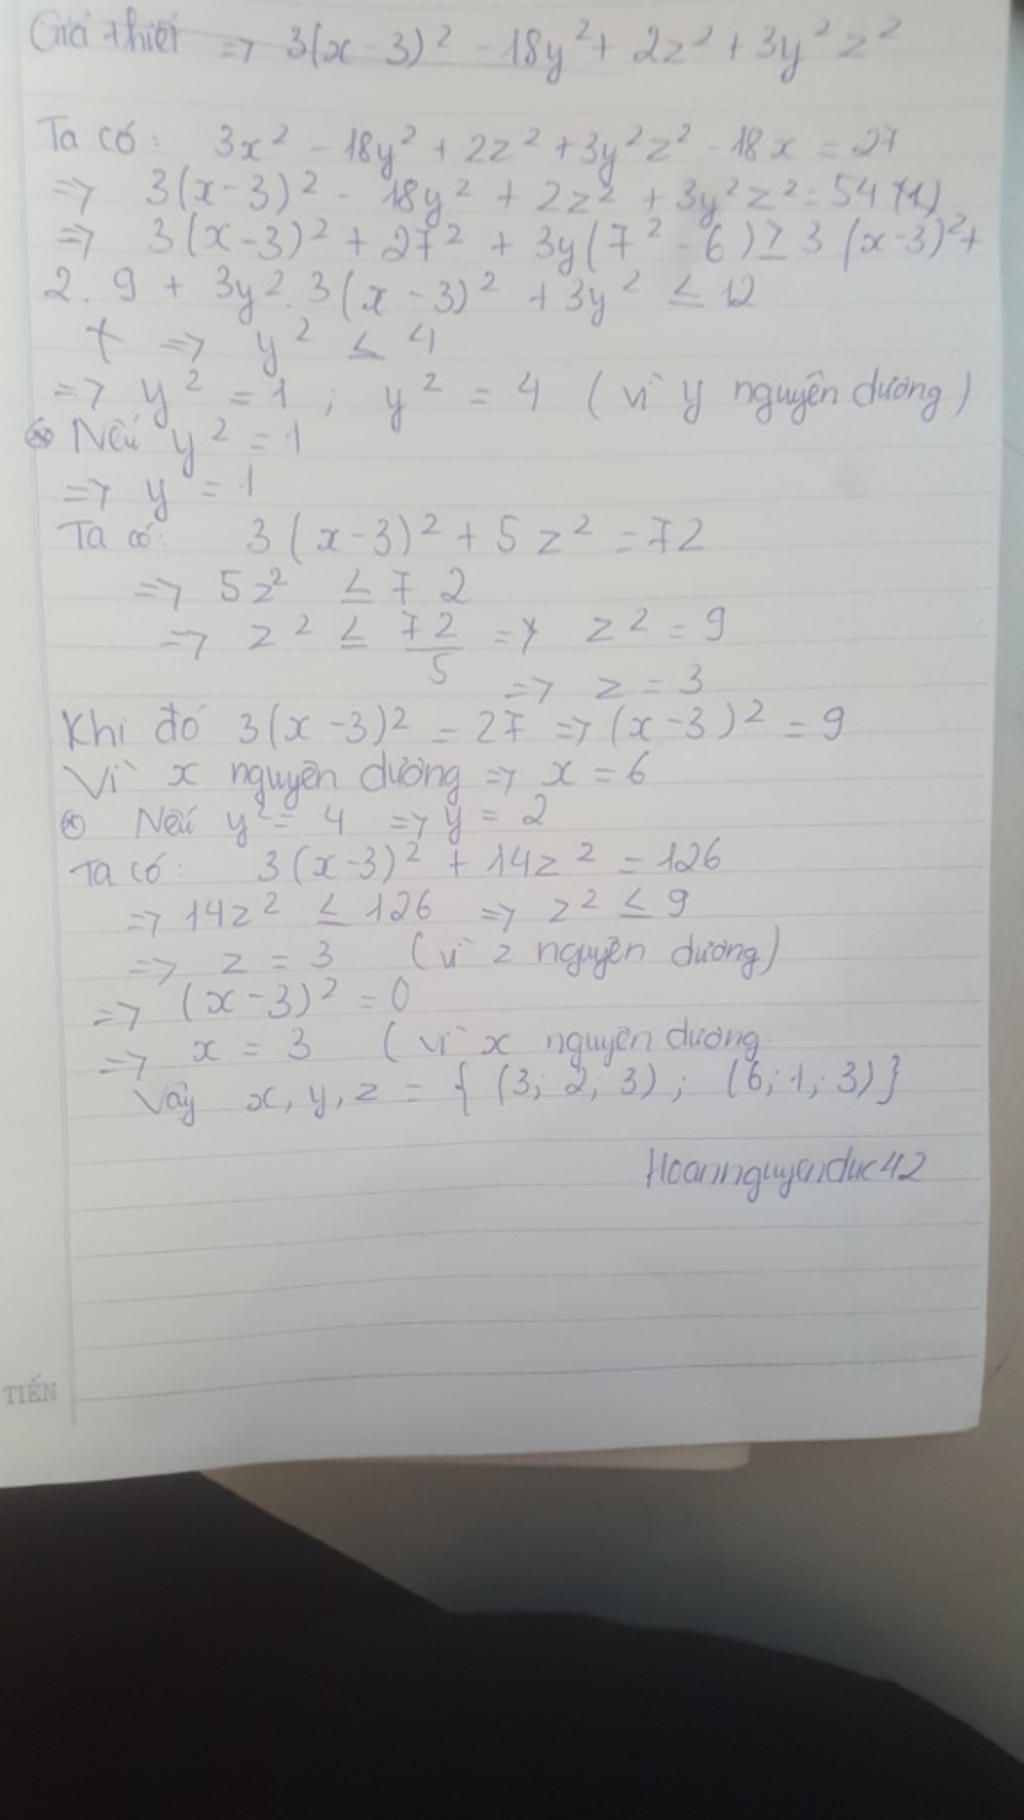 Giả thiết => 3(x - 3)² - 18y² + 2z² + 3y²z²
Ta có: 3x² - 18y² + 2z² + 3y²z² - 18x = 27
=> 3(x-3)² - 18y² + 2z² + 3y²z² = 54 (1)
=> 3(x-3)² + 27² + 3y(7² - 6) ≥ 3 (x-3)² +
2. 9 + 3y². 3(x - 3)² + 3y² ≤ 12
=> y² ≤ 4
=> y² = 1 ; y² = 4 ( vì y nguyên dương )
Nếu y² = 1
=> y = 1
Ta có: 3(x-3)² + 5z² = 72
=> 5z² ≤ 72
=> z² ≤ 72/5 => z² = 9
=> z = 3
Khi đó 3(x-3)² = 27 => (x-3)² = 9
Vì x nguyên dương => x = 6
Nếu y² = 4 => y = 2
Ta có: 3(x-3)² + 14z² = 126
=> 14z² ≤ 126 => z² ≤ 9
=> z = 3 (vì z nguyên dương)
=> (x-3)² = 0
=> x = 3 ( vì x nguyên dương
Vậy x, y, z = { (3; 2; 3) ; (6; 1; 3)}
Hoannguyenduc42
TIẾN